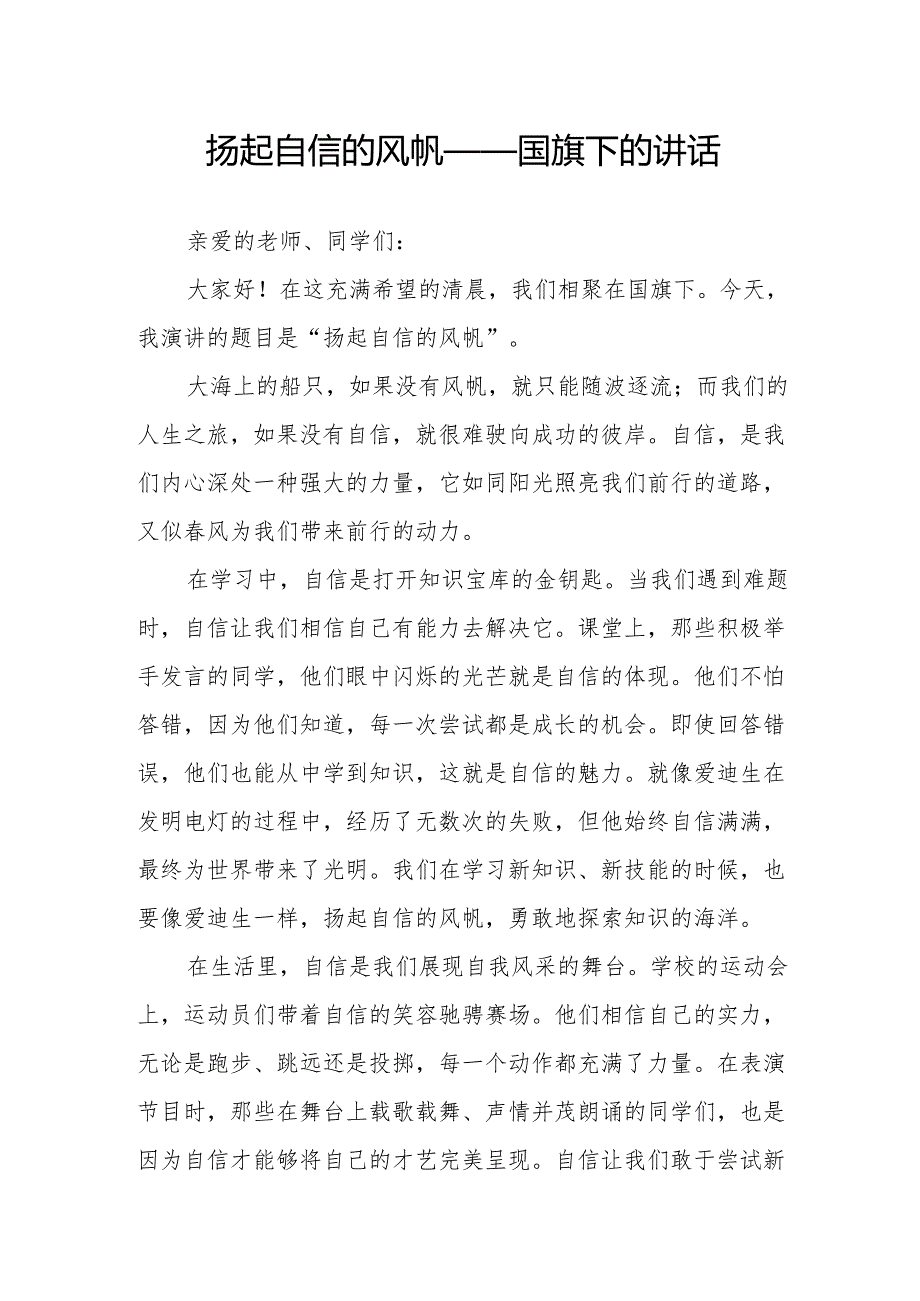 扬起自信的风帆——国旗下的讲话
亲爱的老师、同学们：
大家好！在这充满希望的清晨，我们相聚在国旗下。今天，
我演讲的题目是“扬起自信的风帆”。
大海上的船只，如果没有风帆，就只能随波逐流；而我们的
人生之旅，如果没有自信，就很难驶向成功的彼岸。自信，是我
们内心深处一种强大的力量，它如同阳光照亮我们前行的道路，
又似春风为我们带来前行的动力。
在学习中，自信是打开知识宝库的金钥匙。当我们遇到难题
时，自信让我们相信自己有能力去解决它。课堂上，那些积极举
手发言的同学，他们眼中闪烁的光芒就是自信的体现。他们不怕
答错，因为他们知道，每一次尝试都是成长的机会。即使回答错
误，他们也能从中学到知识，这就是自信的魅力。就像爱迪生在
发明电灯的过程中，经历了无数次的失败，但他始终自信满满，
最终为世界带来了光明。我们在学习新知识、新技能的时候，也
要像爱迪生一样，扬起自信的风帆，勇敢地探索知识的海洋。
在生活里，自信是我们展现自我风采的舞台。学校的运动会
上，运动员们带着自信的笑容驰骋赛场。他们相信自己的实力，
无论是跑步、跳远还是投掷，每一个动作都充满了力量。在表演
节目时，那些在舞台上载歌载舞、声情并茂朗诵的同学们，也是
因为自信才能够将自己的才艺完美呈现。自信让我们敢于尝试新